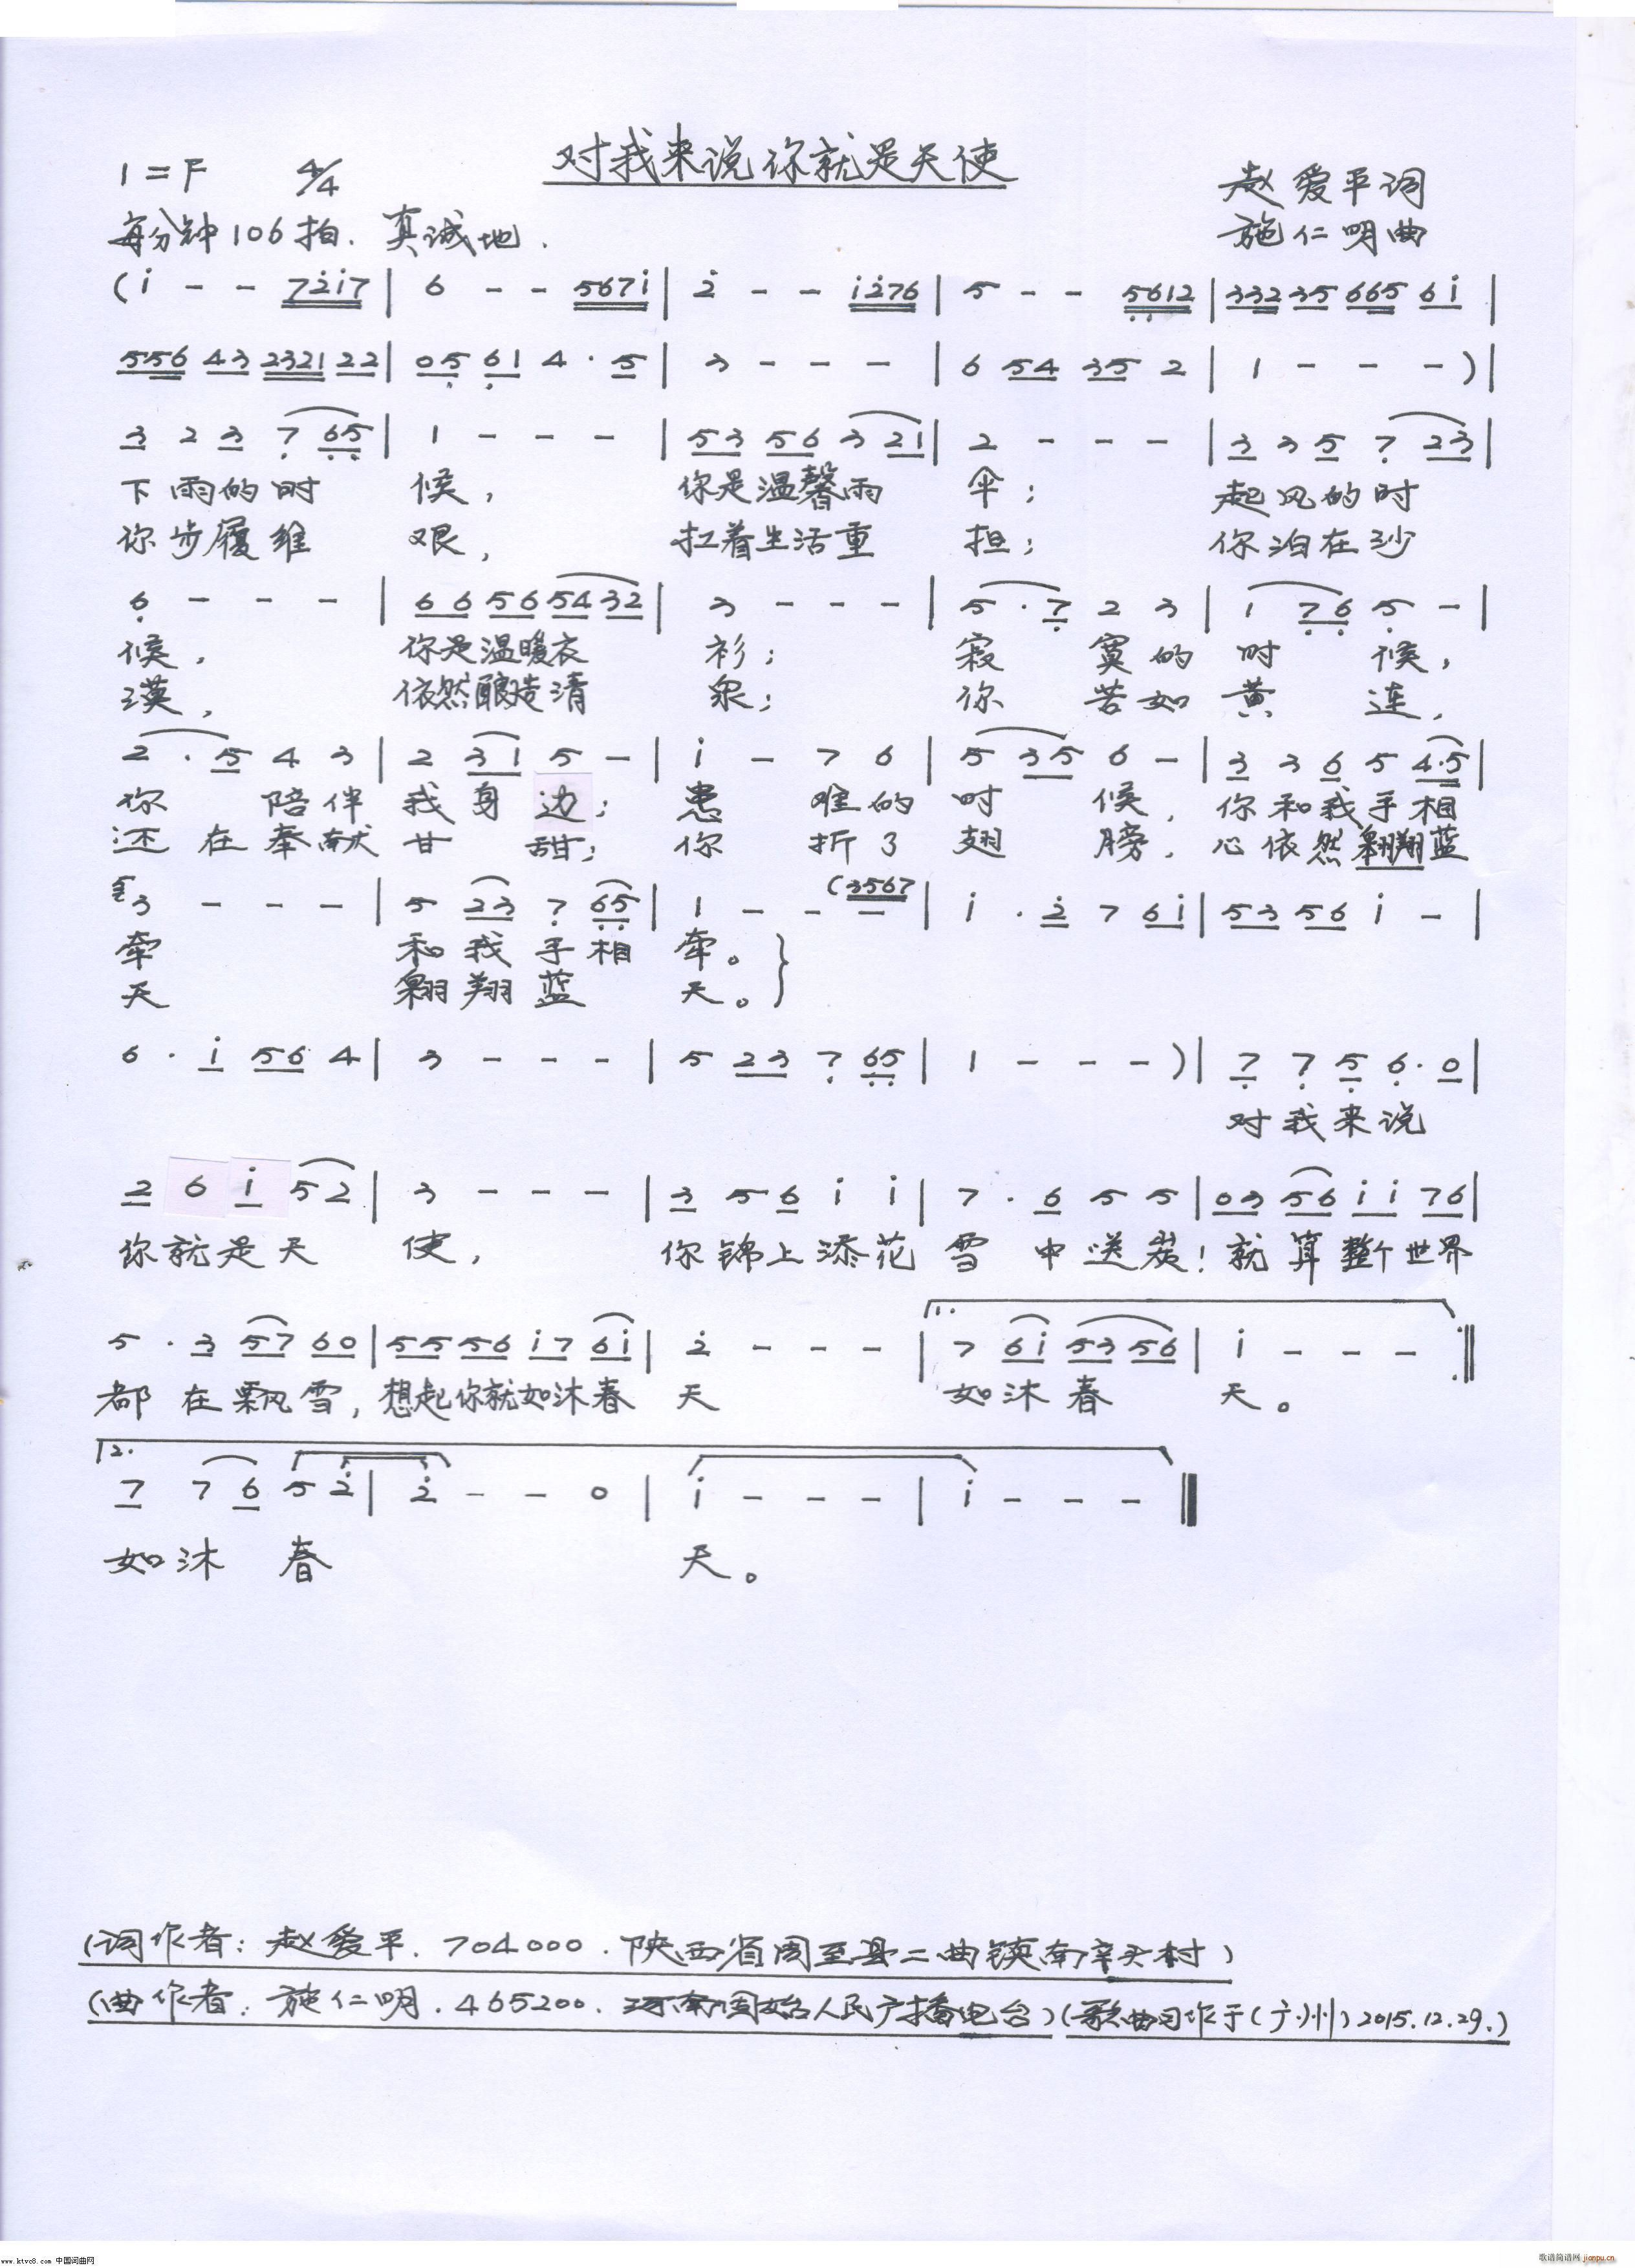 对我来说你就是天使
1=F 4/4
赵爱平词
每分钟106拍. 真诚地.
施仁明曲
(i - - 72i7 | 6 - - 5671 | 2 - - i276 | 5 - - 5612 | 332 35 665 6i |
556 43 2321 22 | 05 61 4 · 5 | 3 - - - | 6 54 35 2 | 1 - - - ) |
3 2 3 7 65 | 1 - - - | 53 56 3 21 | 2 - - - | 3 3 5 7 23 |
下雨的时 候, 你是温馨雨 伞; 起风的时
你步履维 艰, 扛着生活重 担; 你泊在沙
6 - - - | 66 56 54 32 | 3 - - - | 5 · 7 2 3 | 1 76 5 - |
候, 你是温暖衣 衫; 寂 寞的 时 候,
漠, 依然酿造清 泉; 你 苦如 黄 连,
2 · 5 4 3 | 2 31 5 - | i - 7 6 | 5 35 6 - | 3 3 6 5 4·5 |
你 陪伴 我身边; 患 难的 时 候, 你和我手相
还在奉献 甘 甜; 你 折了 翅 膀, 心依然翱翔蓝
3 - - - | 5 23 7 65 | 1 - - - (3567 | i · 2 7 6i | 53 56 i - |
牵 和我手相 牵。}
天 翱翔蓝 天。
6 · i 56 4 | 3 - - - | 5 23 7 65 | 1 - - - ) | 7 7 5 6 · 0 |
对我来说
2 6 i 52 | 3 - - - | 3 5 6 i i | 7 · 6 5 5 | 03 56 ii 76 |
你就是天 使, 你锦上添花 雪 中送炭! 就算整个世界
1.
5 · 3 57 60 | 55 56 i7 6i | 2 - - - | 7 6i 53 56 | i - - - :‖
都在飘雪, 想起你就如沐春 天 如沐春 天。
2.
7 7 6 5 2 | 2 - - 0 | i - - - | i - - - ‖
如沐 春 天。
(词作者: 赵爱平. 704000. 陕西省周至县二曲镇南辛头村)
(曲作者: 施仁明. 465200. 河南固始人民广播电台) (歌曲习作于(广州) 2015.12.29.)
www.ktvc8.com 中国词曲网
歌谱简谱网 jianpu.cn